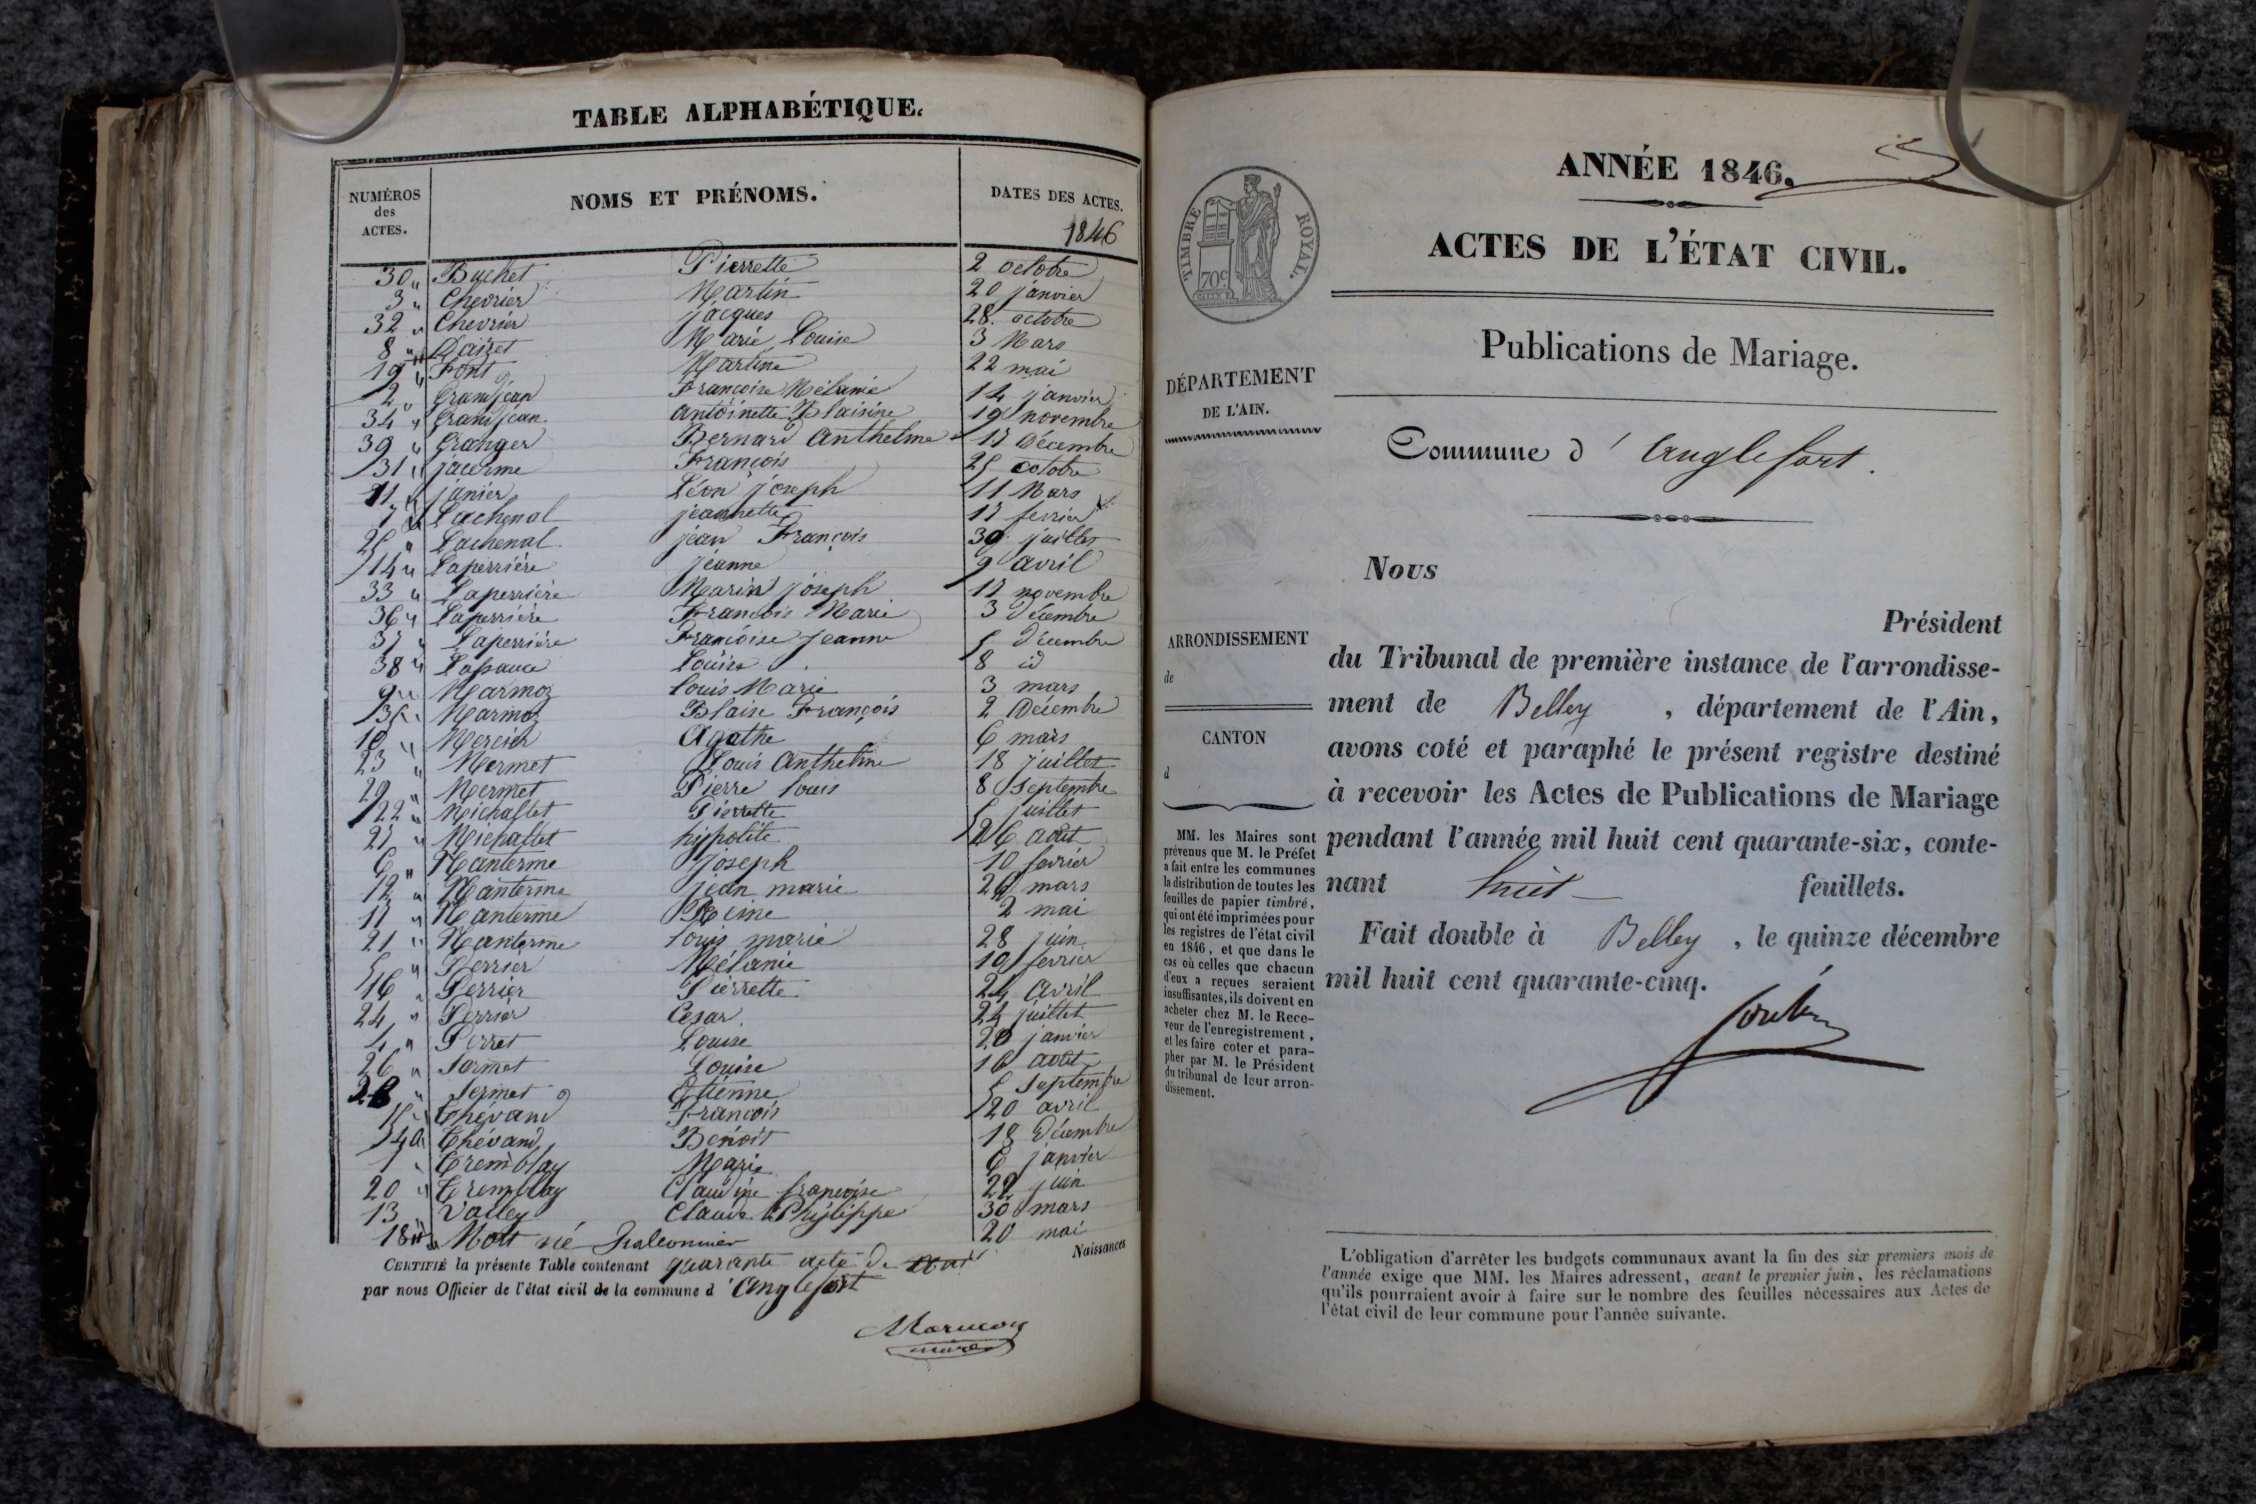 TABLE ALPHABÉTIQUE.
NUMÉROS des ACTES.
NOMS ET PRÉNOMS.
DATES DES ACTES.
1846
30 " Buchet Pierrette 2 octobre
3 " Chevrier Martin 20 janvier
32 " Chevrier jacques 28 octobre
8 " Marie Louise 3 Mars
19 " Font Martine 22 mai
2 " Grandjean Françoise Mélanie 14 janvier
34 " Grandjean antoinette Blaisine 19 novembre
39 " Granger Bernard Anthelme 17 Décembre
31 " jacerme François 25 octobre
11 " janier Léon joseph 11 Mars
7 " Lachenal jeannette 17 fevrier
25 " Lachenal jean François 30 juillet
14 " Laperrière jeanne 9 avril
33 " Laperrière Marin joseph 17 novembre
36 " Laperrière François Marie 3 Décembre
37 " Laperrière Françoise jeanne 5 décembre
38 " Louise 8 id
9 " Marmoz Louis Marie 3 mars
35 " Marmoz Blaise François 2 Décembre
10 " Mercier Agathe 6 mars
23 " Mermet Louis Anthelme 18 juillet
29 " Mermet Pierre Louis 8 Septembre
22 " Michallet Pierrette 5 juillet
27 " Michallet hippolite 26 août
6 " Nanterme Joseph 10 fevrier
12 " Nanterme jean marie 26 mars
17 " Nanterme Reine 2 mai
21 " Nanterme Louis marie 28 juin
5 " Perrier Mélanie 19 fevrier
16 " Perrier Pierrette 24 Avril
24 " Perrier Cesar 24 juillet
4 " Perret Louise 28 janvier
26 " Sermet Louise 16 août
28 " Sermet Etienne 5 Septembre
15 " Thévand François 20 avril
40 Thévand Benoit 18 Décembre
1 " Tremblay Marie 6 janvier
20 " Tremblay Claudine françoise 22 juin
13 " Valley Claude Philippe 30 mars
18 " Mort né 20 mai
CERTIFIÉ la présente Table contenant quarante acte de Naissances
par nous Officier de l'état civil de la commune d'Anglefort
maire
ANNÉE 1846.
TIMBRE ROYAL.
70c
ACTES DE L'ÉTAT CIVIL.
Publications de Mariage.
DÉPARTEMENT
DE L'AIN.
Commune d'Anglefort.
Nous
Président
du Tribunal de première instance de l'arrondisse-
ment de Belley, département de l'Ain,
avons coté et paraphé le présent registre destiné
à recevoir les Actes de Publications de Mariage
pendant l'année mil huit cent quarante-six, conte-
nant huit feuillets.
Fait double à Belley, le quinze décembre
mil huit cent quarante-cinq.
ARRONDISSEMENT
de
CANTON
d
MM. les Maires sont
prévenus que M. le Préfet
a fait entre les communes
la distribution de toutes les
feuilles de papier timbré,
qui ont été imprimées pour
les registres de l'état civil
en 1846, et que dans le
cas où celles que chacun
d'eux a reçues seraient
insuffisantes, ils doivent en
acheter chez M. le Rece-
veur de l'enregistrement,
et les faire coter et para-
pher par M. le Président
du tribunal de leur arron-
dissement.
L'obligation d'arrêter les budgets communaux avant la fin des six premiers mois de
l'année exige que MM. les Maires adressent, avant le premier juin, les réclamations
qu'ils pourraient avoir à faire sur le nombre des feuilles nécessaires aux Actes de
l'état civil de leur commune pour l'année suivante.